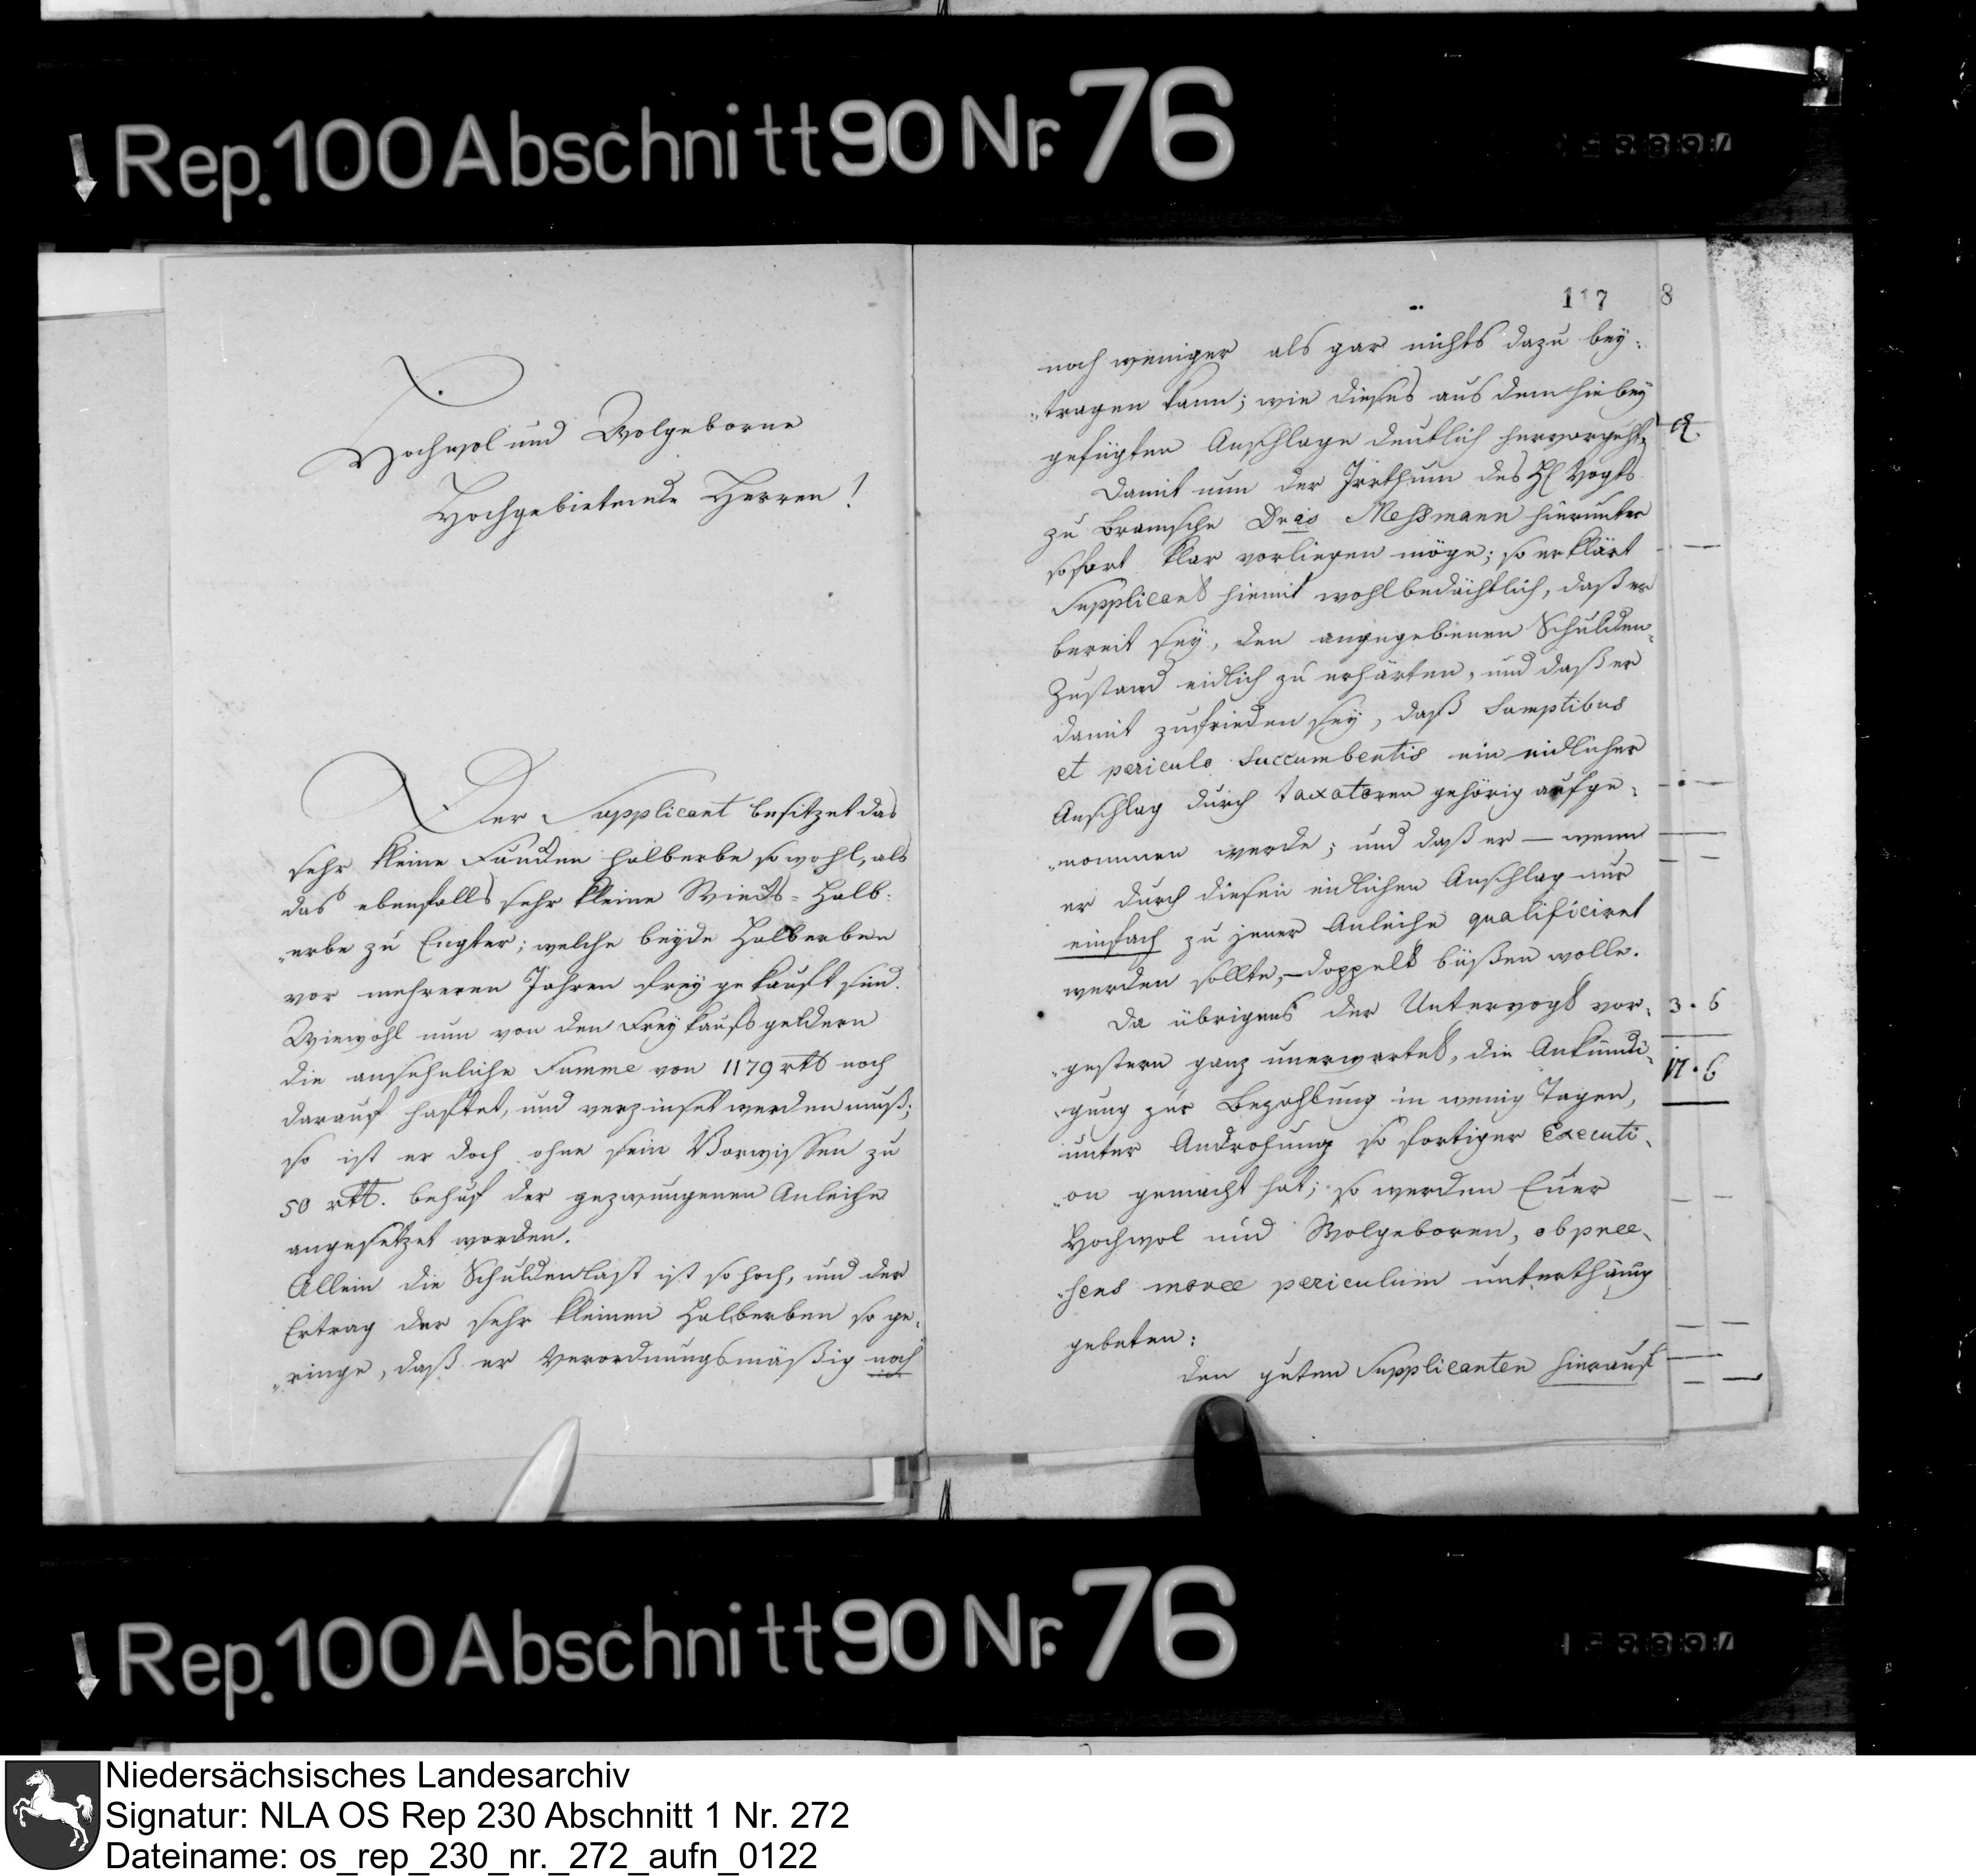 Rep. 100 Abschnitt 90 Nr. 76
Hochwol und Wolgeborne
Hochgebietende Herren!
Der Supplicant besitzet das
sehr kleine Funden halberbe so wohl, als
das ebenfalls sehr kleine Halb-
erbe zu Engter; welche beyde Halberben
vor mehreren Jahren frey gekauft sind.
Wiewohl nun von den Freykaufsgeldern
die ansehnliche Summe von 1179 rtt noch
darauf haftet, und verzinset werden muß;
so ist er doch ohne sein Vorwissen zu
50 rtt. behuf der gezwungenen Anleihe
angesetzet worden.
Allein die Schuldenlast ist so hoch, und der
Ertrag der sehr kleinen Halberben so ge-
"ringe, daß er Verordnungsmäßig noch
117
8
noch weniger als gar nichts dazu bey-
"tragen kann; wie dieses aus dem hiebey
gefügten Anschlage deutlich hervorgeht.
Damit nun der Irrthum des H Vogts
zu Bramsche Dris Meßmann hierunter
sofort klar vorliegen möge; so erklärt
Supplicant hiemit wohlbedächtlich, daß er
bereit sey, den angegebenen Schulden-
Zustand eidlich zu erhärten, und daß er
damit zufrieden sey, daß Sumptibus
et periculo Succumbentis ein eidlicher
Anschlag durch taxatoren gehörig aufge-
"nommen werde; und daß er – wenn
er durch diesen eidlichen Anschlag nur
einfach zu jener Anleihe qualificiret
werden sollte, – doppelt büßen wolle.
Da übrigens der Untervogt vor-
"gestern ganz unerwartet, die Ankündi-
"gung zur Bezahlung in wenig Tagen,
unter Androhung sofortiger Executi-
"on gemacht hat; so werden Euer
Hochwol und Wolgeboren, ob prae-
"sens morae periculum unterthänig
gebeten:
den guten Supplicanten hierauf
3 . 6
Rep. 100 Abschnitt 90 Nr. 76
Niedersächsisches Landesarchiv
Signatur: NLA OS Rep 230 Abschnitt 1 Nr. 272
Dateiname: os_rep_230_nr._272_aufn_0122